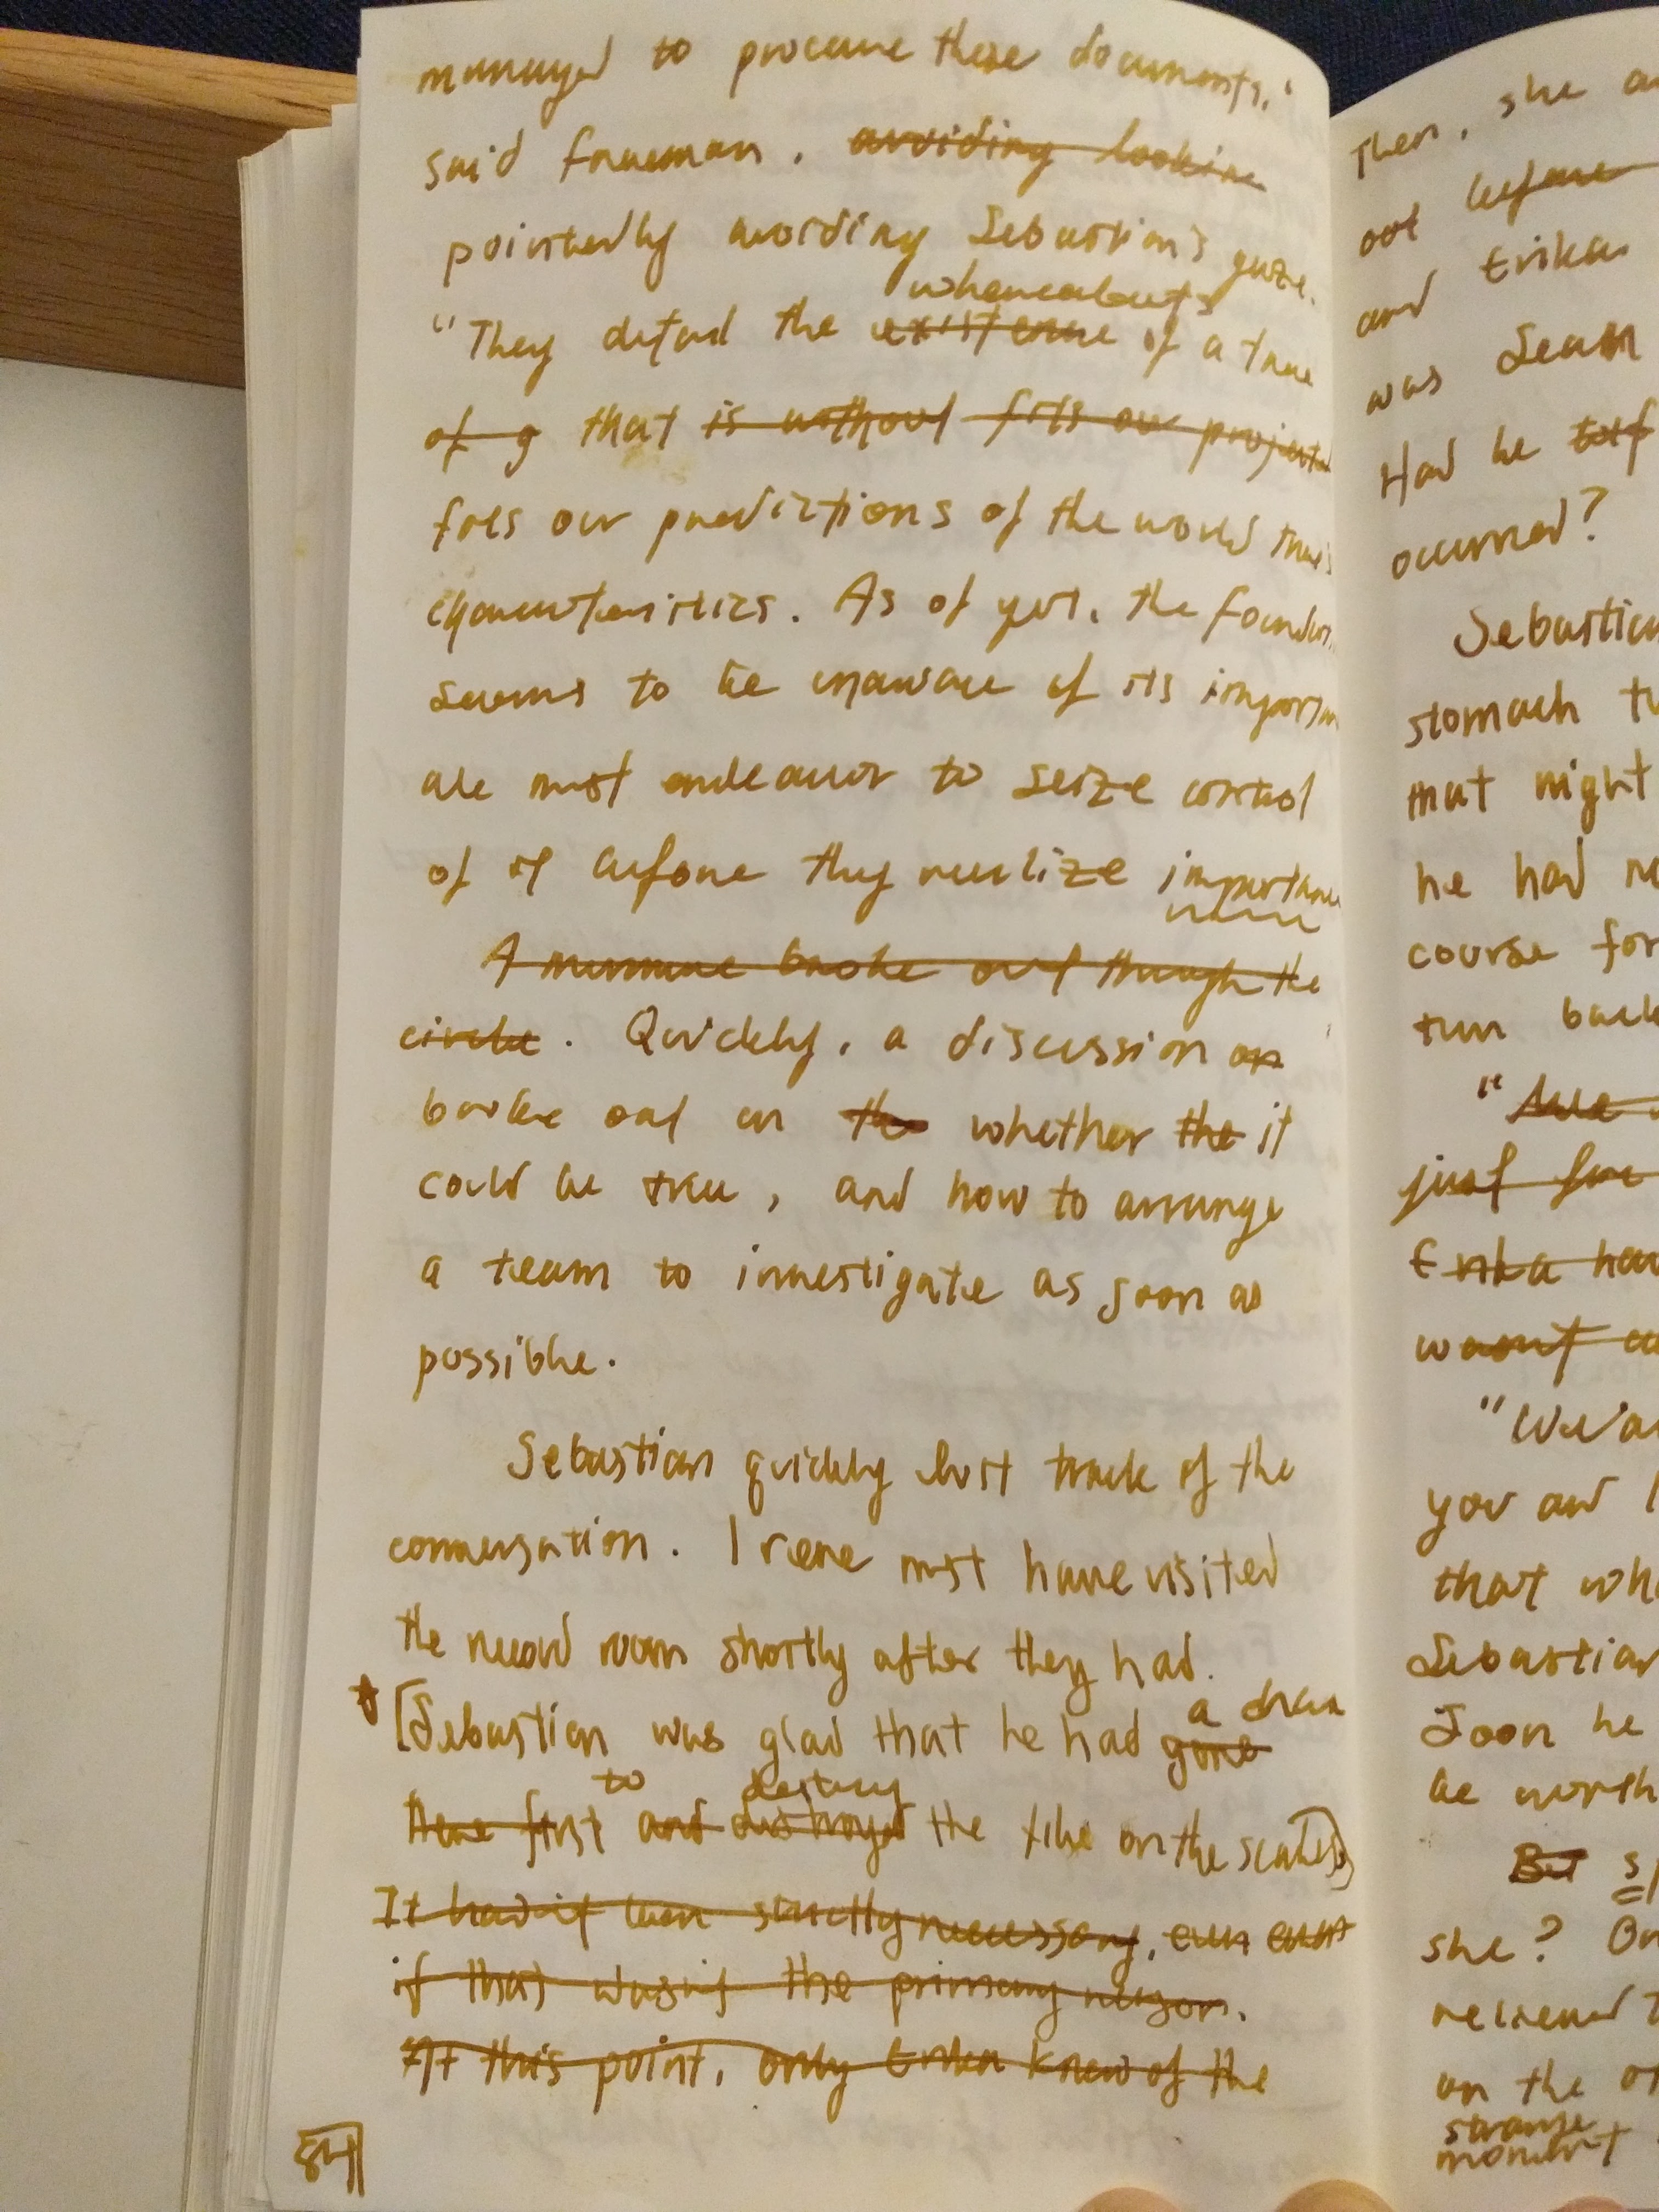 managed to procure these documents,"
said Foreman, avoiding looking
pointedly avoiding Sebastian's gaze.
whereabouts
"They detail the existence of a tree
of g that is without fits our projected
fits our predictions of the world tree's
characteristics. As of yet, the foundation
seems to be unaware of its importance
We must endeavor to seize control
of it before they realize importance
A murmur broke out through the
circle. Quickly, a discussion on
broke out on the whether the it
could be true, and how to arrange
a team to investigate as soon as
possible.
Sebastian quickly lost track of the
conversation. Irene must have visited
the record room shortly after they had.
a
[Sebastian was glad that he had gone
to destroy
there first and destroyed the file on the
It hadn't been strictly necessary, even
if that wasn't the primary reason.
At this point, only Erika knew of the
84
Then, she
out before
and Erika
was Sean
Had he
occurred?
Sebastian
stomach
that night
he had
course for
turn back
"
just for
Erika
wasn't
"We'
you and
that
Sebastian
Soon he
be worth
But
she?
relieved
on the
strange
moment